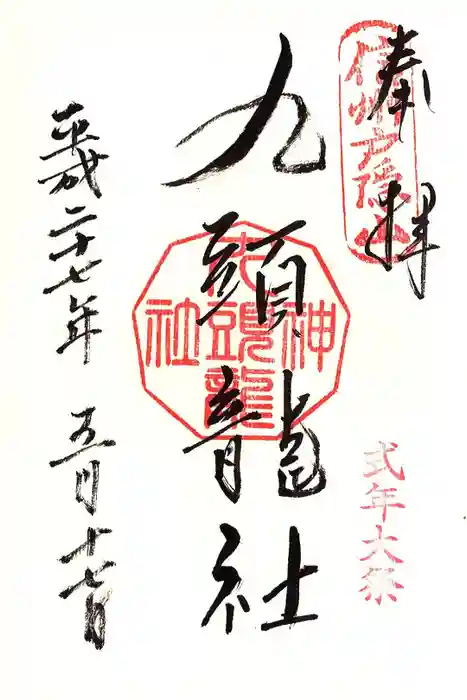 奉拝
信州戸隠山
九頭龍社
九頭龍
神
社
式年大祭
平成二十七年 五月十七日